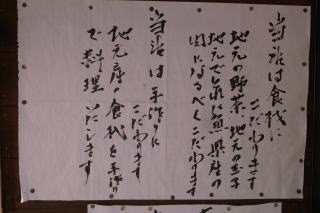 は食材に
こだわります
地元の野菜地元の玉子
地元で 魚県産の
肉になるべくこだわります
は手作りに
こだわります
地元産の食材を手作り
で料理いたします